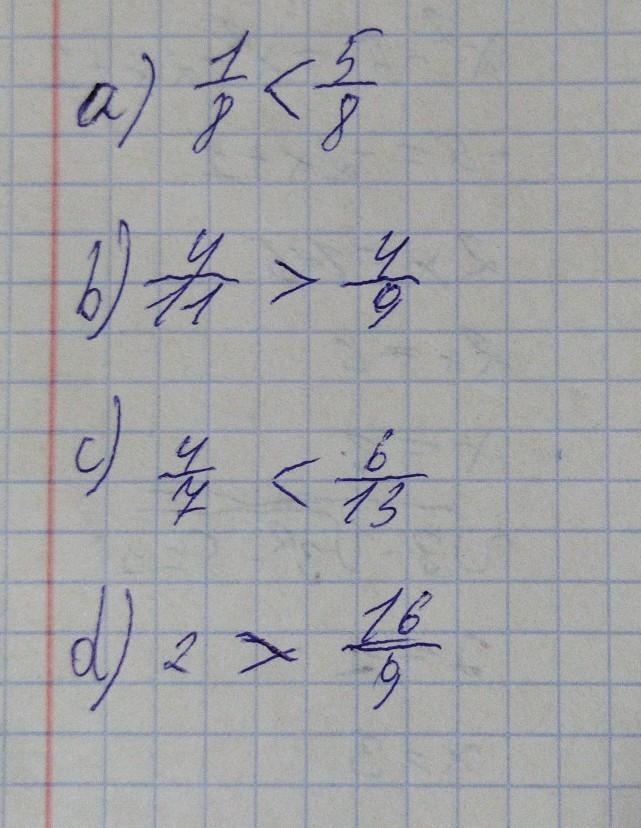 a) 1/8 < 5/8
b) 4/11 > 4/9
c) 4/7 < 6/13
d) 2 > 16/9